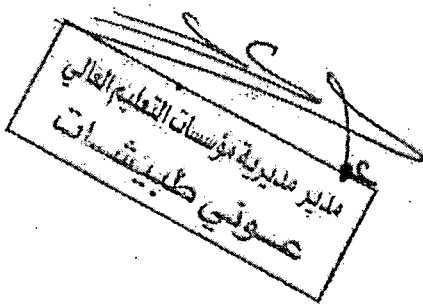 مدير مديرية مؤسسات التعليم العالي
عوني طبيشات